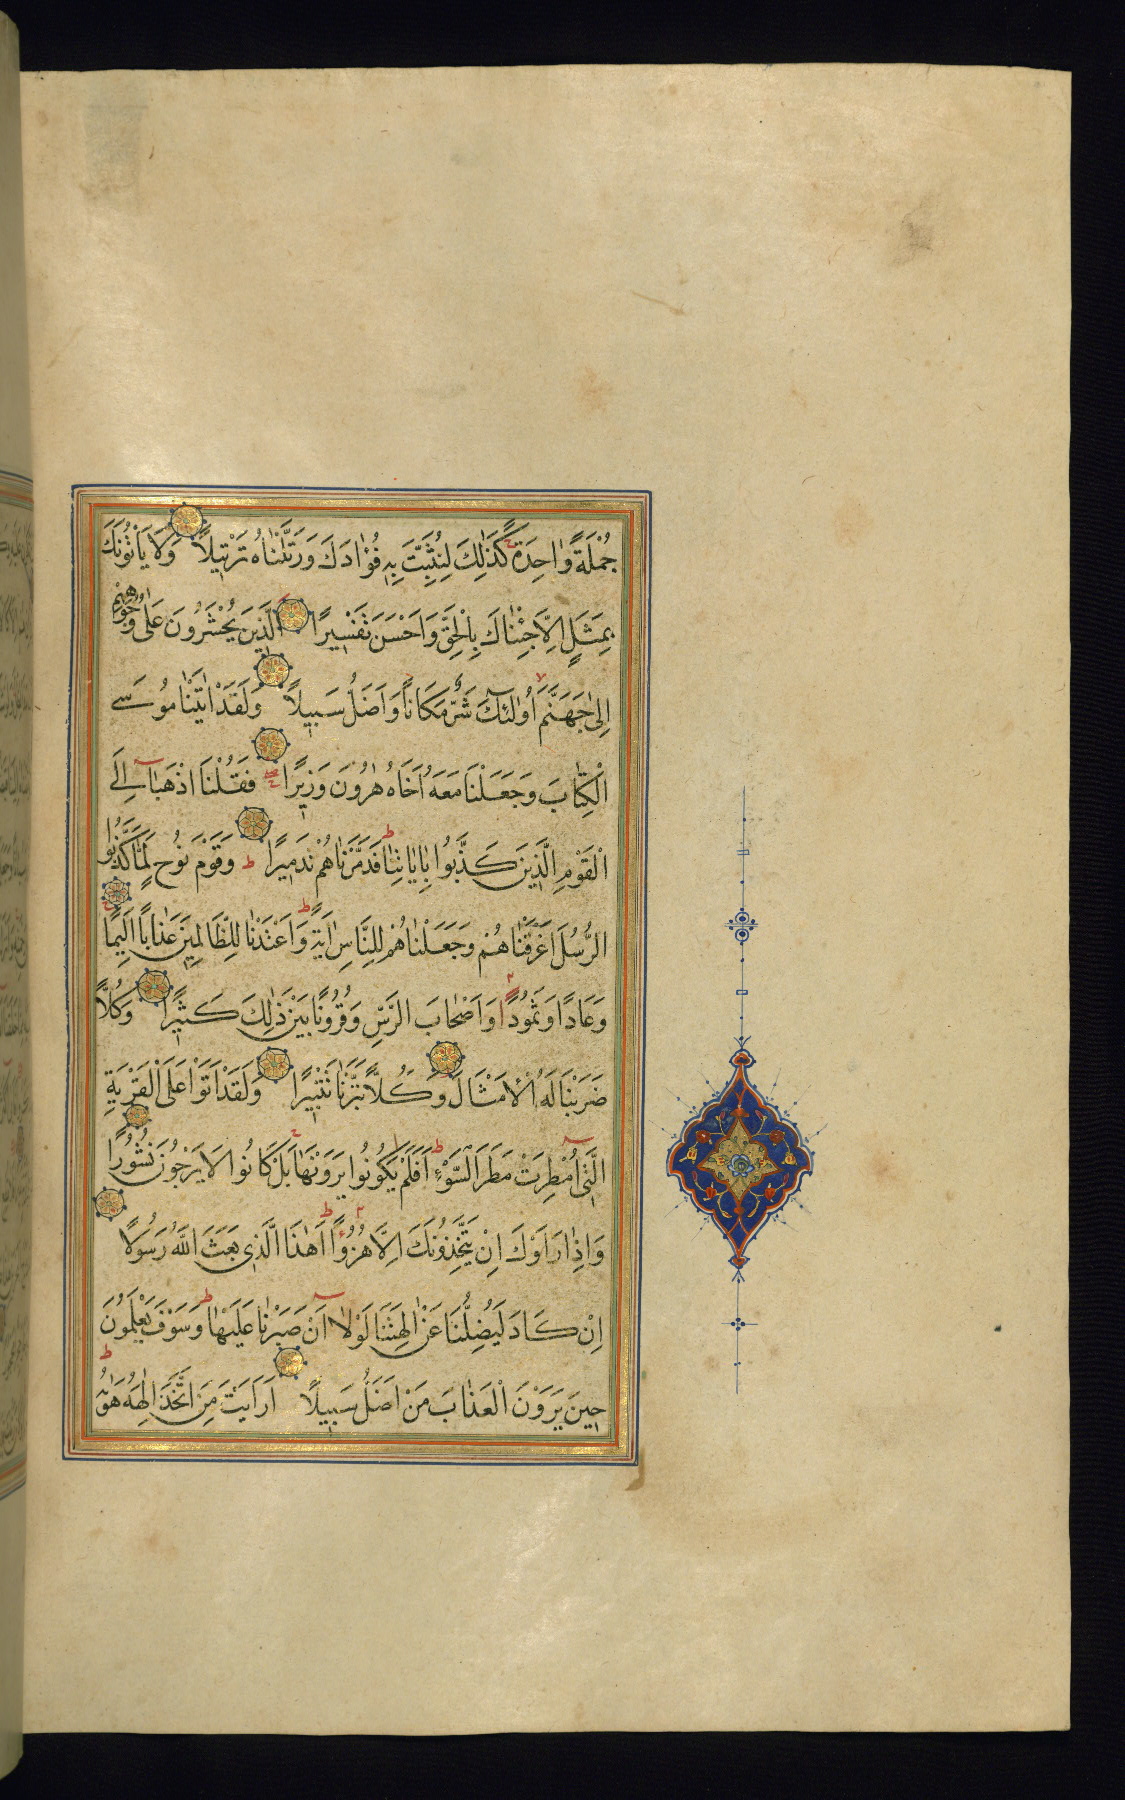 جُمْلَةً وٰاحِدَةً كَذٰلِكَ لِنُثَبِّتَ بِهِ فُؤٰادَكَ وَرَتَّلْنٰاهُ تَرْتِيلًا وَلَا يَأْتُونَكَ
بِمَثَلٍ اِلَّا جِئْنٰاكَ بِالْحَقِّ وَاَحْسَنَ تَفْسِيرًا اَلَّذِينَ يُحْشَرُونَ عَلٰى وُجُوهِهِمْ
اِلٰى جَهَنَّمَ اُولٰئِكَ شَرٌّ مَكَانًا وَاَضَلُّ سَبِيلًا وَلَقَدْ اٰتَيْنٰا مُوسَى
الْكِتٰابَ وَجَعَلْنَا مَعَهُ اَخَاهُ هٰرُونَ وَزِيرًا فَقُلْنَا اذْهَبَا اِلَى
الْقَوْمِ الَّذِينَ كَذَّبُوا بِاٰيَاتِنٰا فَدَمَّرْنٰاهُمْ تَدْمِيرًا وَقَوْمَ نُوحٍ لَمَّا كَذَّبُوا
الرُّسُلَ اَغْرَقْنٰاهُمْ وَجَعَلْنٰاهُمْ لِلنَّاسِ اٰيَةً وَاَعْتَدْنٰا لِلظَّالِمِينَ عَذٰابًا اَلِيمًا
وَعَادًا وَثَمُودًا وَاَصْحٰابَ الرَّسِّ وَقُرُونًا بَيْنَ ذٰلِكَ كَثِيرًا وَكُلًّا
ضَرَبْنَا لَهُ الْاَمْثَالَ وَكُلًّا تَبَّرْنٰا تَتْبِيرًا وَلَقَدْ اَتَوْا عَلَى الْقَرْيَةِ
الَّتِى اُمْطِرَتْ مَطَرَ السَّوْءِ اَفَلَمْ يَكُونُوا يَرَوْنَهٰا بَلْ كَانُوا لَا يَرْجُونَ نُشُورًا
وَاِذٰا رَاَوْكَ اِنْ يَتَّخِذُونَكَ اِلَّا هُزُوًا اَهٰذَا الَّذِى بَعَثَ اللّٰهُ رَسُولًا
اِنْ كَادَ لَيُضِلُّنَا عَنْ اٰلِهَتِنَا لَوْلٰا اَنْ صَبَرْنٰا عَلَيْهٰا وَسَوْفَ يَعْلَمُونَ
حِينَ يَرَوْنَ الْعَذٰابَ مَنْ اَضَلُّ سَبِيلًا اَرَاَيْتَ مَنِ اتَّخَذَ اِلٰهَهُ هَوٰيهُ